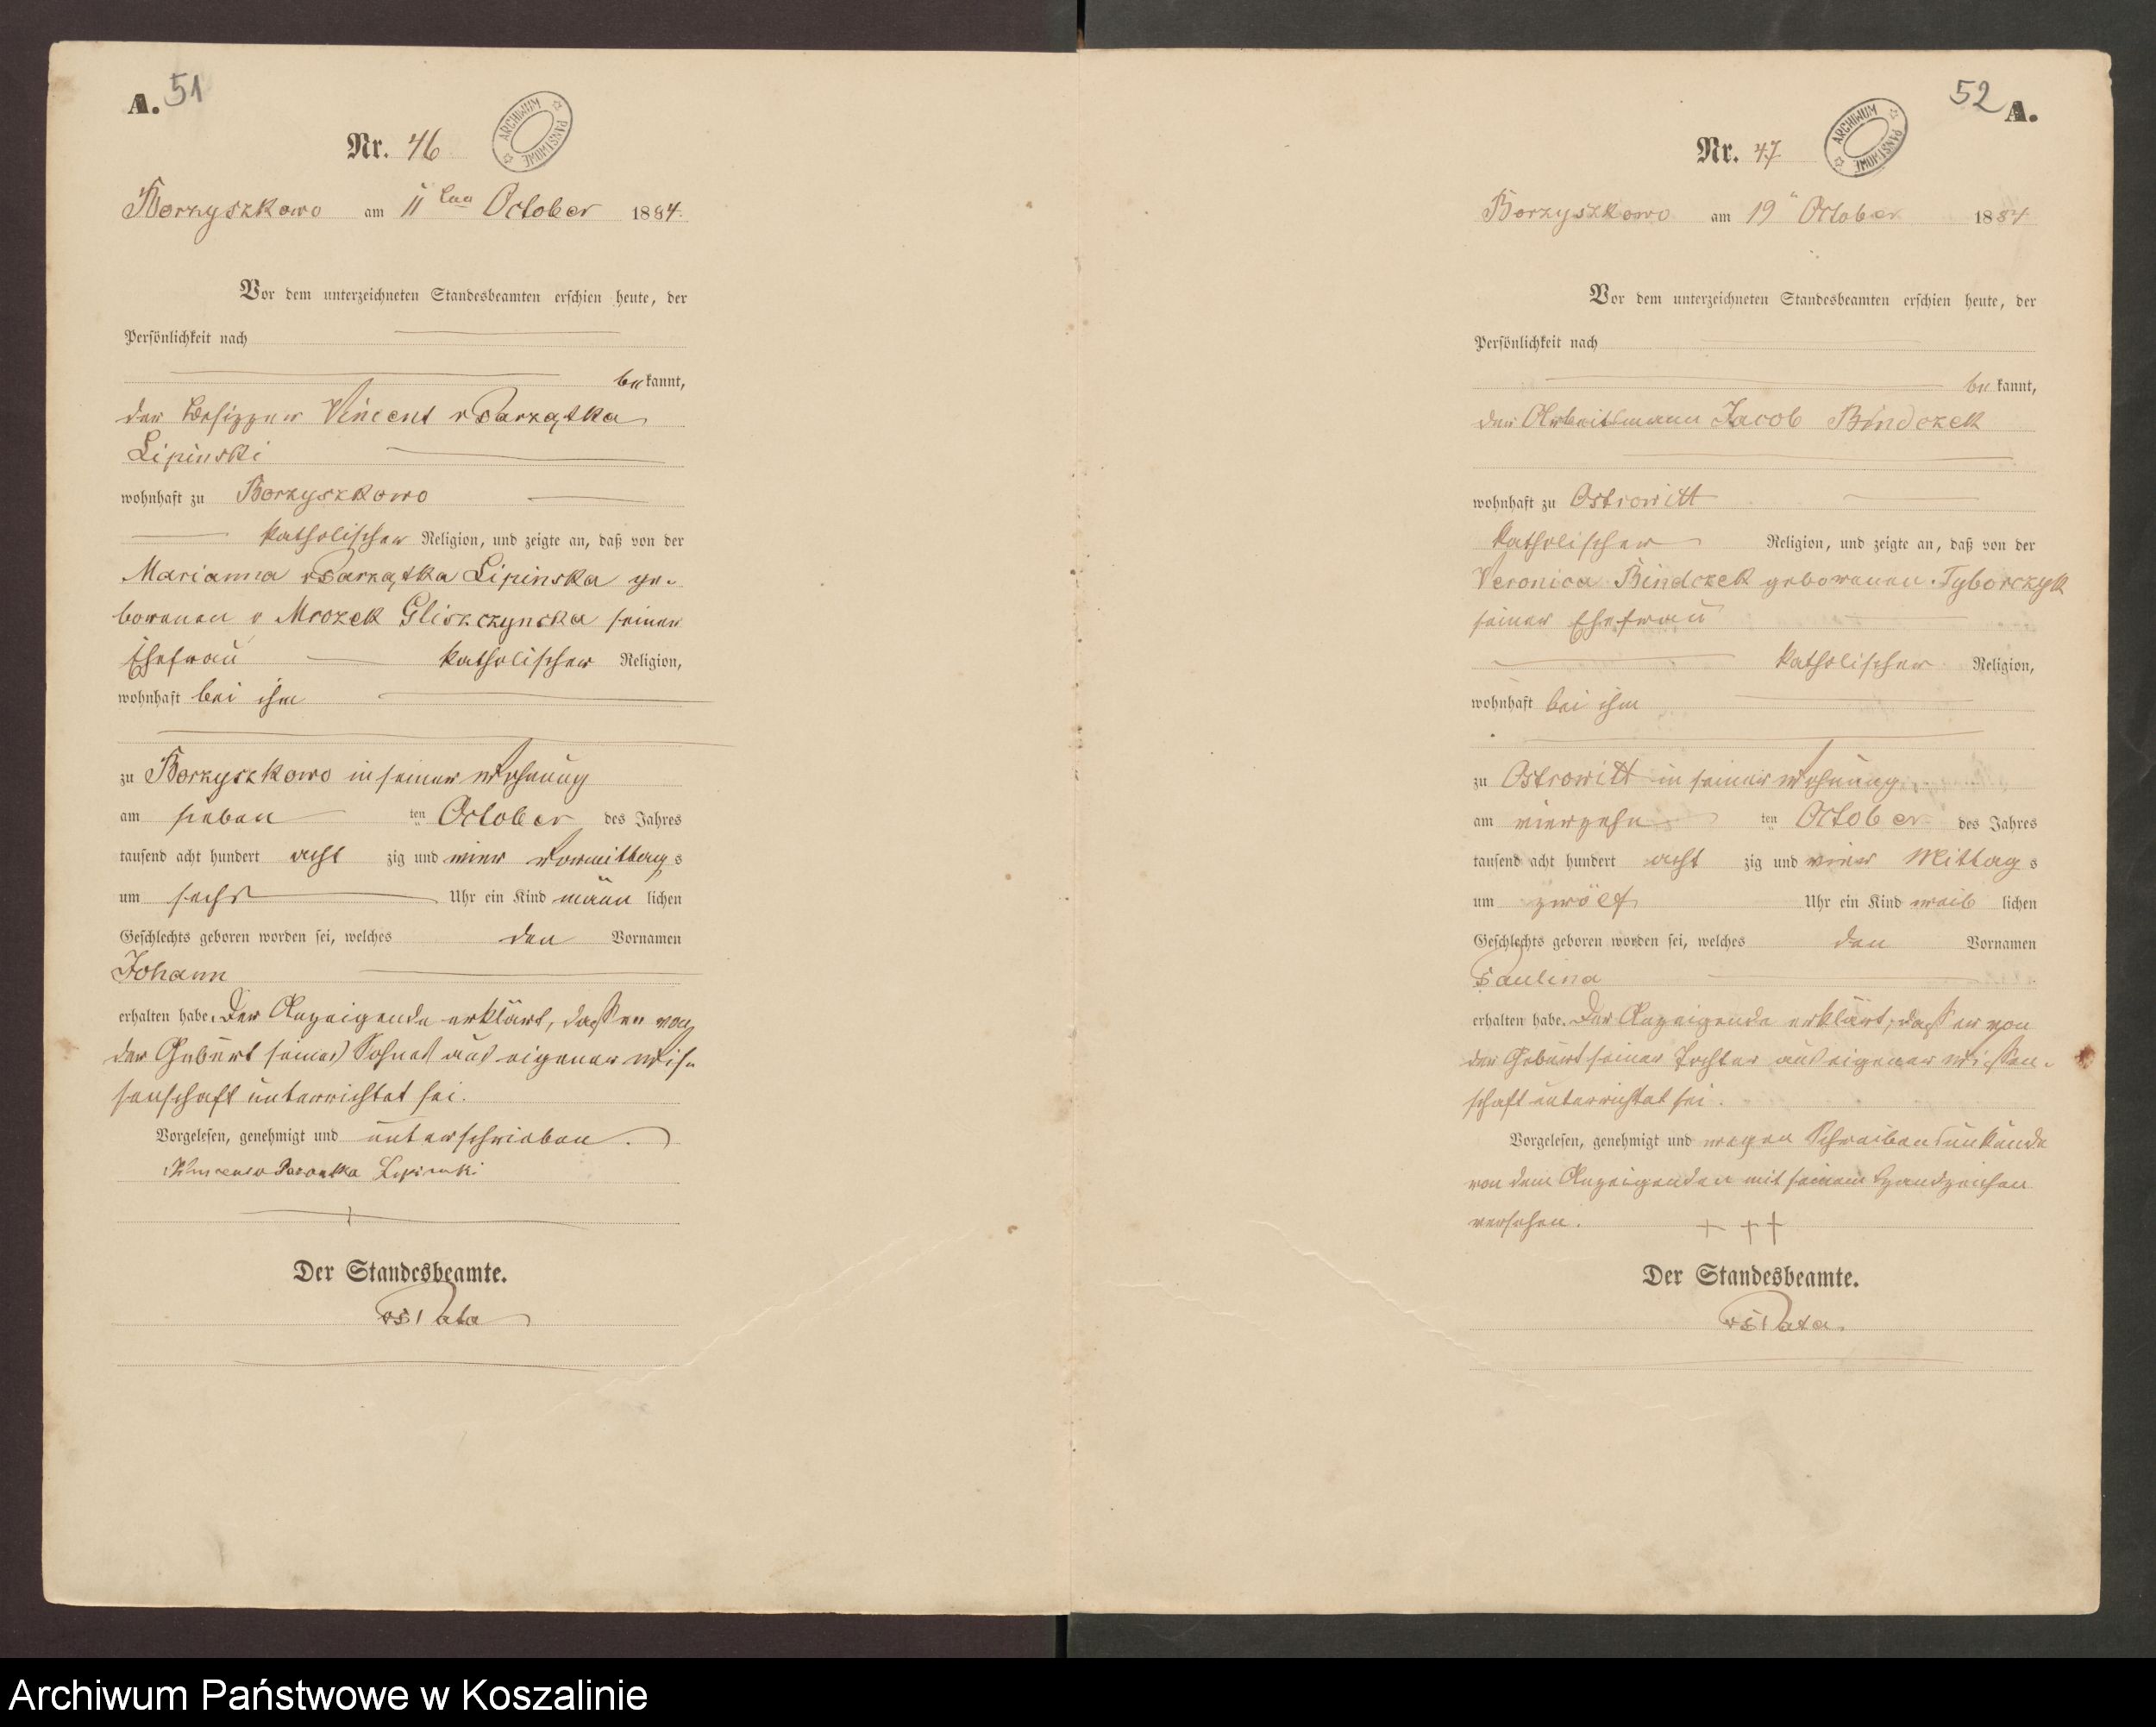 A. 51
ARCHIWUM PAŃSTWOWE
Nr. 46
Borzyszkowo am 11ten October 1884.
Vor dem unterzeichneten Standesbeamten erschien heute, der
Persönlichkeit nach
bekannt,
der Besitzer Vincent v Parzątka
Lipinski
wohnhaft zu Borzyszkowo
katholischer Religion, und zeigte an, daß von der
Marianna v Parzątka Lipinska ge-
borenen v Mrozek Gliszczynska seiner
Ehefrau katholischer Religion,
wohnhaft bei ihm
zu Borzyszkowo in seiner Wohnung
am sieben ten October des Jahres
tausend acht hundert acht zig und vier Vormittags
um sechs Uhr ein Kind männ lichen
Geschlechts geboren worden sei, welches den Vornamen
Johann
erhalten habe. Der Anzeigende erklärt, dass er von
der Geburt seines Sohnes aus eigener Wis-
senschaft unterrichtet sei.
Vorgelesen, genehmigt und unterschrieben.
Lipinski
Der Standesbeamte.
52 A.
ARCHIWUM PAŃSTWOWE
Nr. 47
Borzyszkowo am 19" October 1884
Vor dem unterzeichneten Standesbeamten erschien heute, der
Persönlichkeit nach
bekannt,
der Arbeitsmann Jacob Bindczek
wohnhaft zu Ostrowitt
katholischer Religion, und zeigte an, daß von der
Veronica Bindczek geborenen Tyborczyk
seiner Ehefrau
katholischer Religion,
wohnhaft bei ihm
zu Ostrowitt in seiner Wohnung
am vierzehn ten October des Jahres
tausend acht hundert acht zig und vier Mittag s
um zwölf Uhr ein Kind weib lichen
Geschlechts geboren worden sei, welches den Vornamen
Paulina
erhalten habe. Der Anzeigende erklärt, dass er von
der Geburt seiner Tochter aus eigener Wissen-
schaft unterrichtet sei.
Vorgelesen, genehmigt und wegen Schreibensunkunde
von dem Anzeigenden mit seinem Handzeichen
versehen. + + +
Der Standesbeamte.
Archiwum Państwowe w Koszalinie